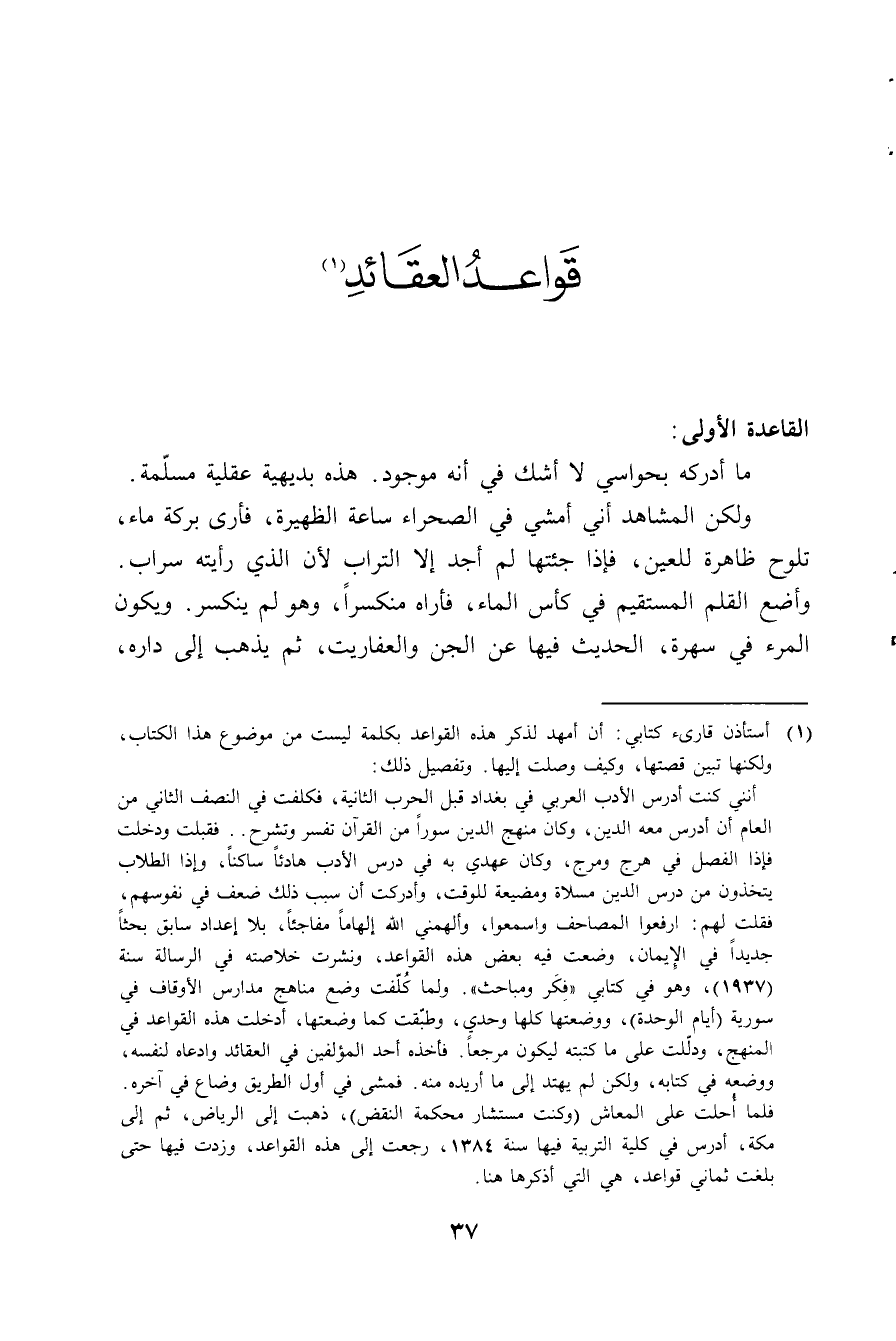 قَوَاعـدُ العقَـائدِ (١)
القاعدة الأولى:
ما أدركه بحواسي لا أشك في أنه موجود. هذه بديهية عقلية مسلّمة.
ولكن المشاهد أني أمشي في الصحراء ساعة الظهيرة، فأرى بركة ماء،
تلوح ظاهرة للعين، فإذا جئتها لم أجد إلا التراب لأن الذي رأيته سراب.
وأضع القلم المستقيم في كأس الماء، فأراه منكسراً، وهو لم ينكسر. ويكون
المرء في سهرة، الحديث فيها عن الجن والعفاريت، ثم يذهب إلى داره،
(١) أستأذن قارىء كتابي: أن أمهد لذكر هذه القواعد بكلمة ليست من موضوع هذا الكتاب،
ولكنها تبين قصتها، وكيف وصلت إليها. وتفصيل ذلك:
أنني كنت أدرس الأدب العربي في بغداد قبل الحرب الثانية، فكلفت في النصف الثاني من
العام أن أدرس معه الدين، وكان منهج الدين سوراً من القرآن تفسر وتشرح.. فقبلت ودخلت
فإذا الفصل في هرج ومرج، وكان عهدي به في درس الأدب هادئاً ساكناً، وإذا الطلاب
يتخذون من درس الدين مسلاة ومضيعة للوقت، وأدركت أن سبب ذلك ضعف في نفوسهم،
فقلت لهم: ارفعوا المصاحف واسمعوا، وألهمني الله إلهاماً مفاجئاً، بلا إعداد سابق بحثاً
جديداً في الإيمان، وضعت فيه بعض هذه القواعد، ونشرت خلاصته في الرسالة سنة
(١٩٣٧)، وهو في كتابي «فِكَر ومباحث». ولما كُلّفت وضع مناهج مدارس الأوقاف في
سورية (أيام الوحدة)، ووضعتها كلها وحدي، وطبّقت كما وضعتها، أدخلت هذه القواعد في
المنهج، ودلّلت على ما كتبته ليكون مرجعاً. فأخذه أحد المؤلفين في العقائد وادعاه لنفسه،
ووضعه في كتابه، ولكن لم يهتد إلى ما أريده منه. فمشى في أول الطريق وضاع في آخره.
فلما أُحلت على المعاش (وكنت مستشار محكمة النقض)، ذهبت إلى الرياض، ثم إلى
مكة، أدرس في كلية التربية فيها سنة ١٣٨٤، رجعت إلى هذه القواعد، وزدت فيها حتى
بلغت ثماني قواعد، هي التي أذكرها هنا.
٣٧